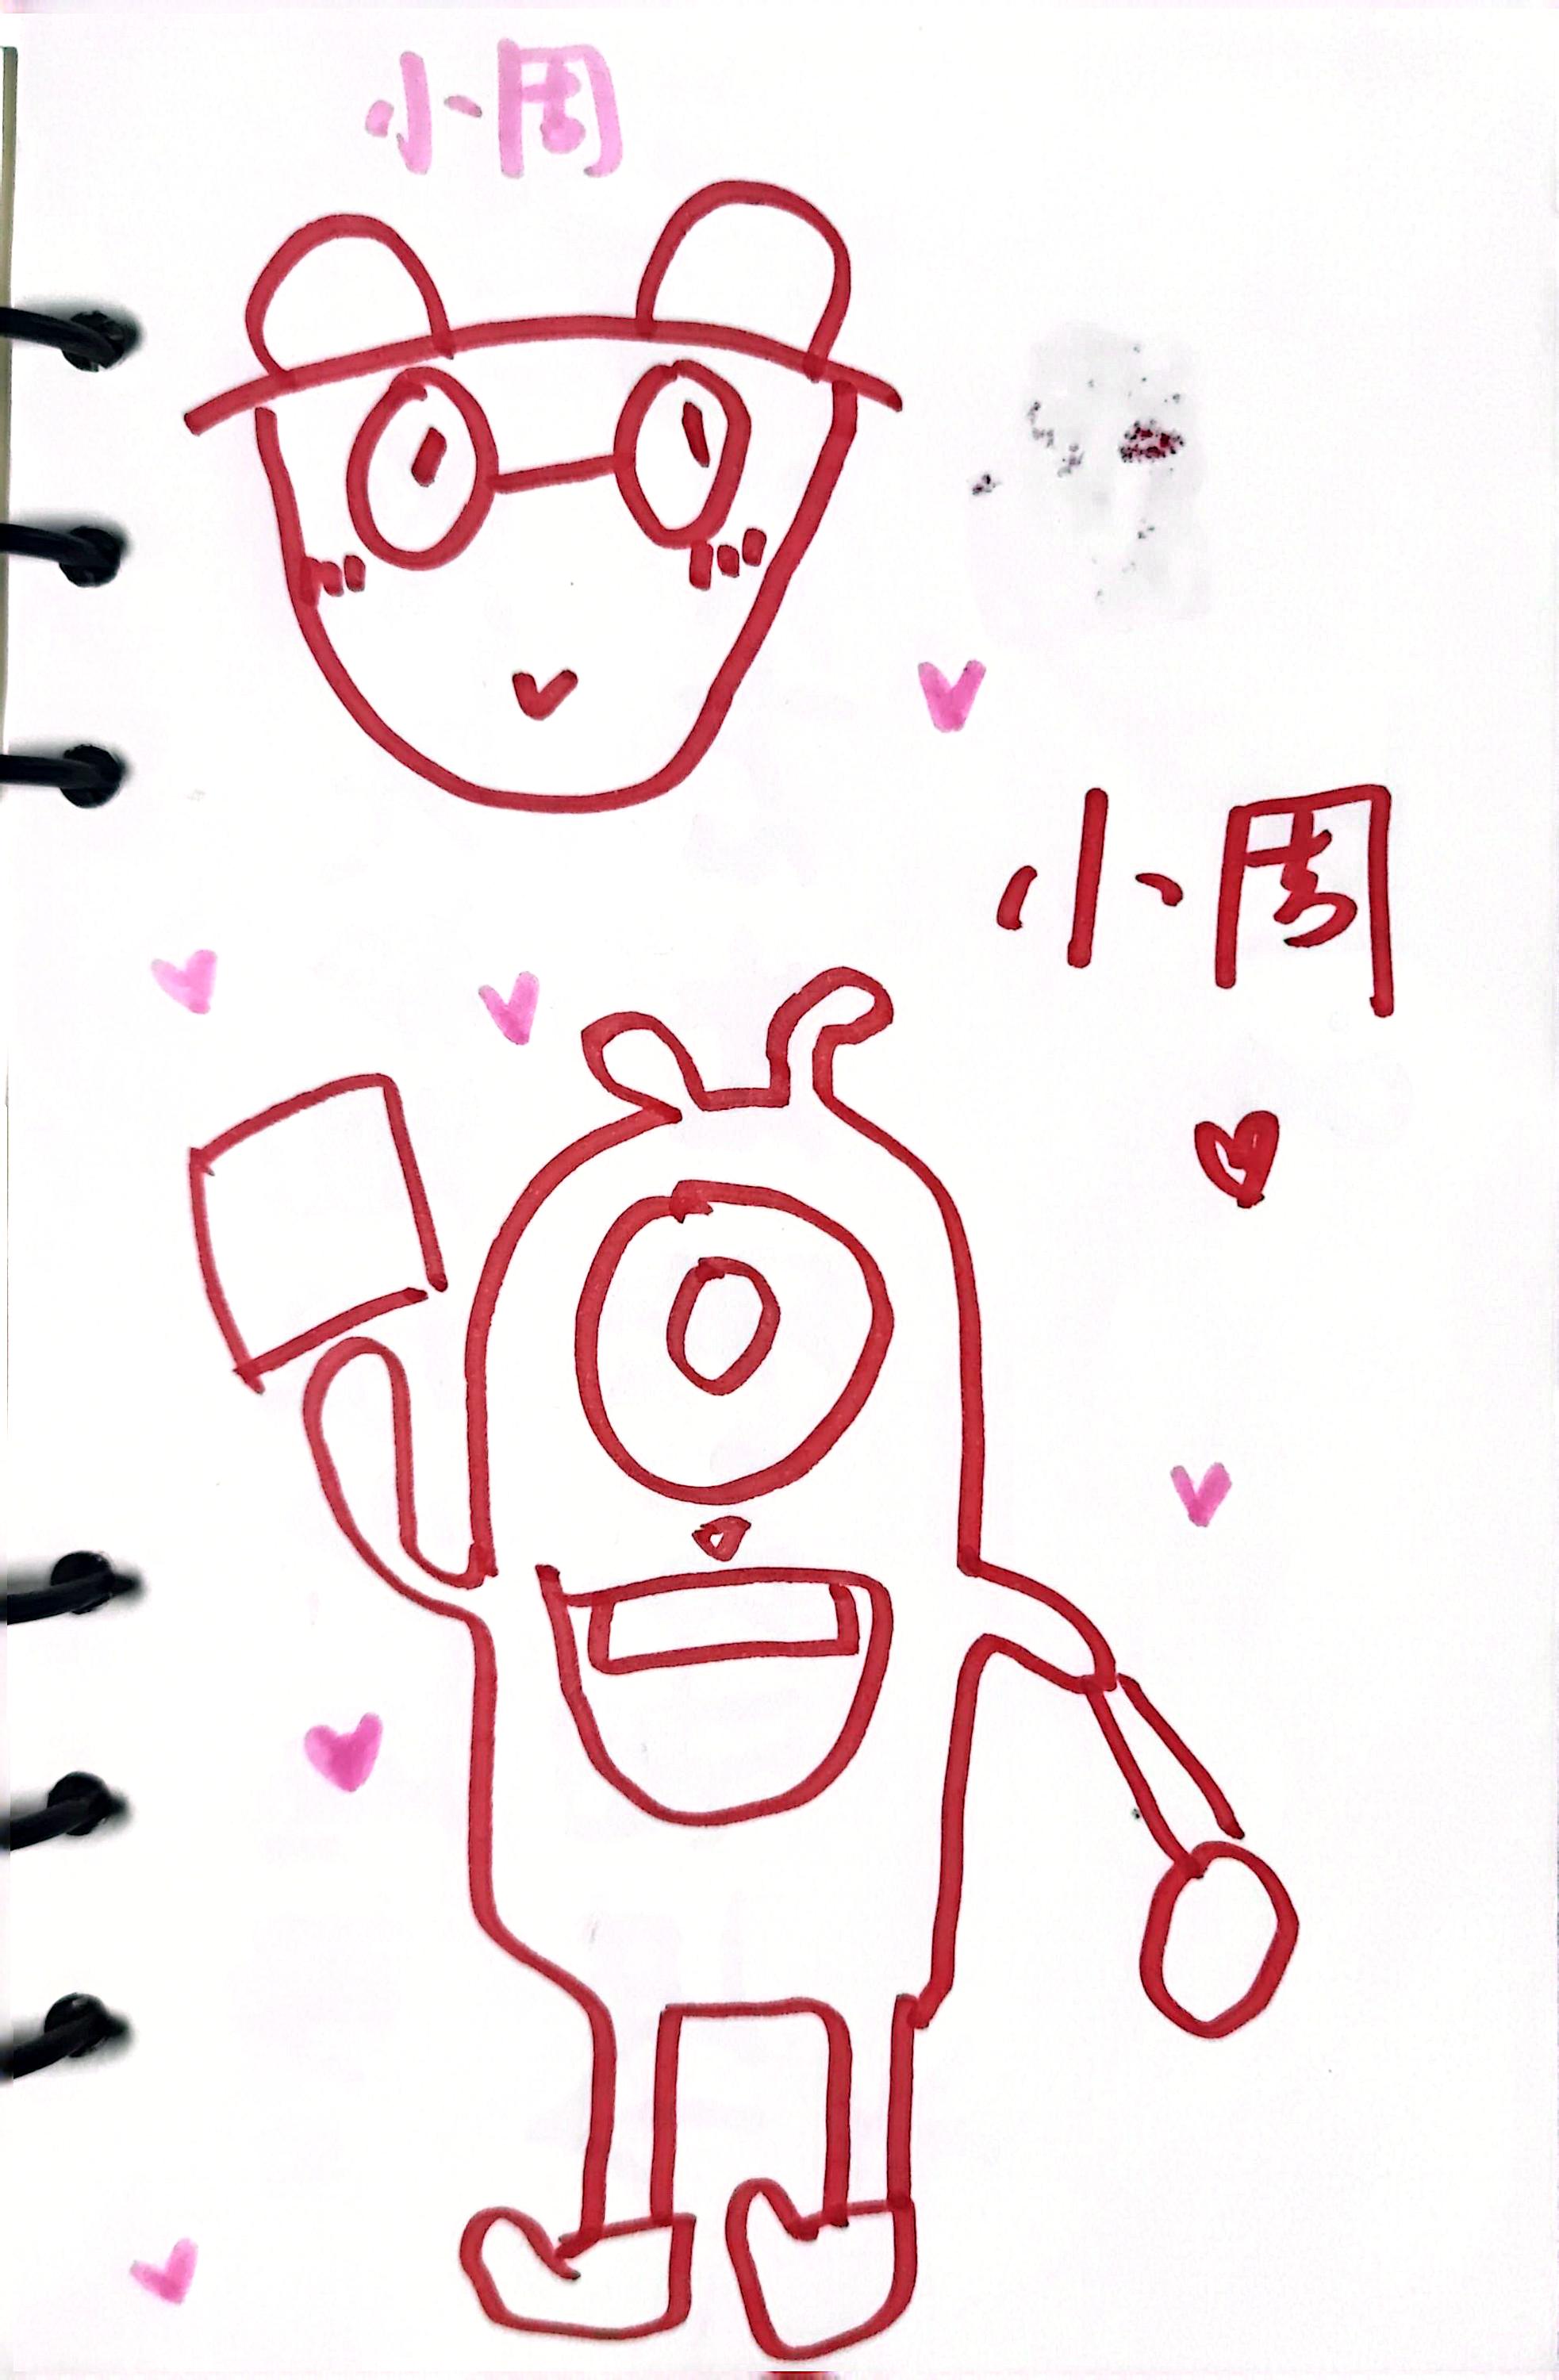 小周
小周